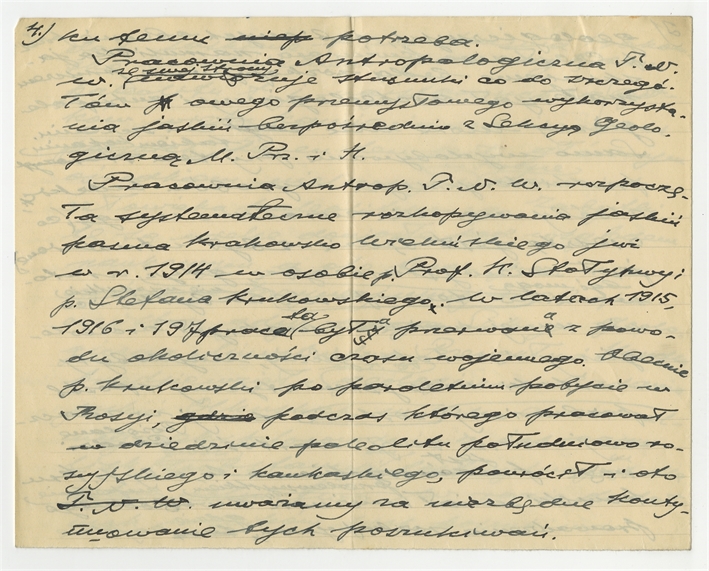 4.) ku temu niep potrzeba.
Pracownia Antropologiczna T. N.
W. ze swej strony nawiązuje stosunki co do szczegó-
łów owego przemysłowego wykorzysta-
nia jaskiń bezpośrednio z Sekcyą Geolo-
giczną M. Prz. i H.
Pracownia Antrop. T. N. W. rozpoczę-
ła systematyczne rozkopywania jaskiń
pasma krakowsko wieluńskiego już
w r. 1914 w osobie p. Prof. K. Stołyhwy i
p. Stefana Krukowskiego. W latach 1915,
1916 i 197 praca ta była przerwana z powo-
du okoliczności czasu wojennego. Obecnie
p. Krukowski po paroletnim pobycie w
Rosyi, gdzie podczas którego pracował
w dziedzinie paleolitu południowo ro-
syjskiego i kaukaskiego, powrócił i oto
T. N. W. uważamy za niezbędne konty-
nuowanie tych poszukiwań.